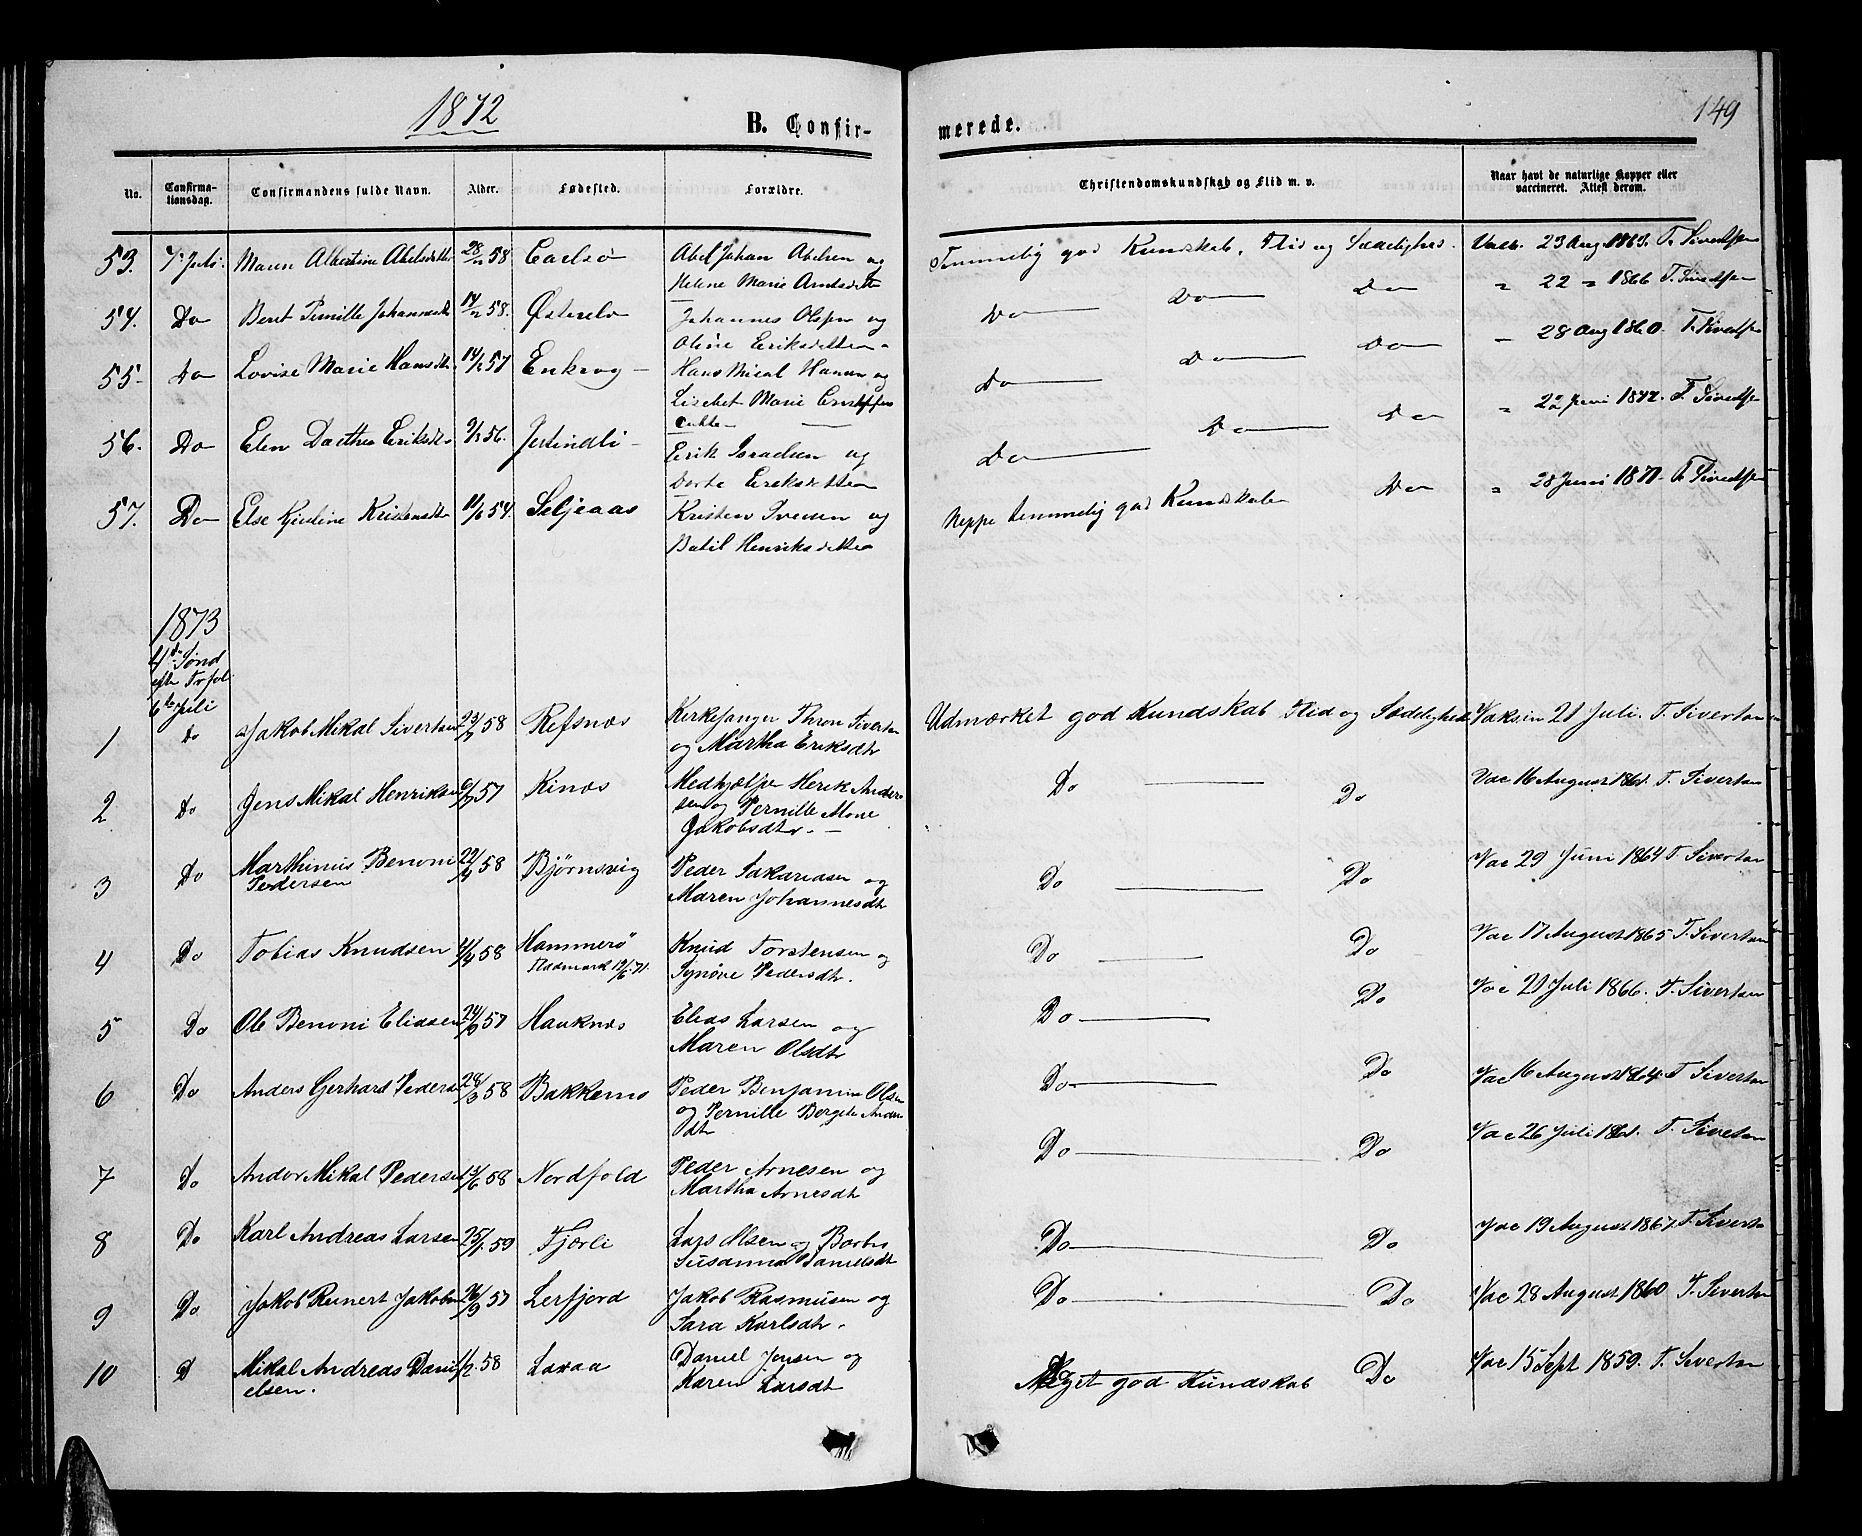 1872
B. Confir-
merede.
149
No.
Confirma-
tionsdag.
Confirmandens fulde Navn.
Alder.
Fødested.
Forældre.
Christendomskundskab og Flid m. v.
Naar havt de naturlige Kopper eller
vaccineret. Attest derom.
53. 7 Juli Maren Albertine Abelsdatter 58 Abel Johan Abelsen og
Helene Marie Arntsdatter
Temmelig god Kundskab, Flid og Sædelighed. Vacc. 23 Aug. T. Sivertsen
54. Do Beret Pernille Johannesdtr 58. Johannes Olsen og
Oline Eriksdatter
Do Do Do " 22 " 1866 T. Sivertsen
55 Do Lovise Marie Hansdtr 14/ 57 Enkrog Hans Mical Hansen og
Lisebet Marie
datter
Do Do Do 28 Aug 1860. T. Sivertsen
56. Do Elen Dorthea Eriksdtr 56. Erik Israelsen og
Dorte Eriksdatter
Do Do Do " Juni 1872. T. Sivertsen
57. Do Else Kristensdtr 11/6 54. Seljeaas Kristen Iversen og
Henriksdatter
Neppe temmelig god Kundskab Do " 28 Juni T. Sivertsen
1873
4de Sønd
efter
6te Juli
1 Do Jakob Mikal Sivertsen 58 Refsnæs Kirkesanger Thron Sivertsen
og Martha Eriksdtr
Udmærket god Kundskab Flid og Sædelighed Vaksin 21 Juli. T. Sivertsen
2 Do Jens Mikal Henriksen 57 Kinæs Medhjælper Herik Ander-
sen og Pernille Mone
Jakobsdtr.
Do Do Vac 16 August 1861. T. Sivertsen
3 Do Marthinus Benoni
Pedersen
22/4 58 Bjørnsvig Peder Sakariasen og
Maren Johannesdtr
Do Do Vac 29 Juni 1864 T. Sivertsen
4 Do Tobias Knudsen 58 Hammerø
19/6 71.
Knud Torstensen og
Synøve Pedersdtr.
Do Do Vac 17 August 1865 T. Sivertsen
5 Do Ole Benoni Eliasen 24/9 57 Hauknæs Elias Larsen og
Maren Olsdtr
Do Do Vac 21 Juli 1866. T. Sivertsen
6 Do Anders Gerhard Pedersen 28/3 58 Bakkemo Peder Benjamin Olsen
og Pernille Bergete Anders
dtr
Do Do Vac 16 August 1864. T. Sivertsen
7 Do Andor Mikal Pedersen 58 Nordfold Peder Arnesen og
Martha Arnesdtr
Do Do Vac 26 Juli 1861. T. Sivertsen
8 Do Karl Andreas Larsen 25/1 59 Fjærli Lars Olsen og Barbro
Susanna Danielsdtr
Do Do Vac 19 August 1867. T. Sivertsen
9 Do Jakob Reinert Jakobsen 26/9 57 Lerfjord Jakob Rasmusen og
Sara Karlsdtr.
Do Do Vac 28 August 1860 T. Sivertsen
10 D Mikal Andreas Dani-
elsen.
1/2. 58 Laxaa Daniel Jensen og
Karen Larsdtr
Meget god Kundskab Do Vac 15 Sept 1859. T. Sivertsen